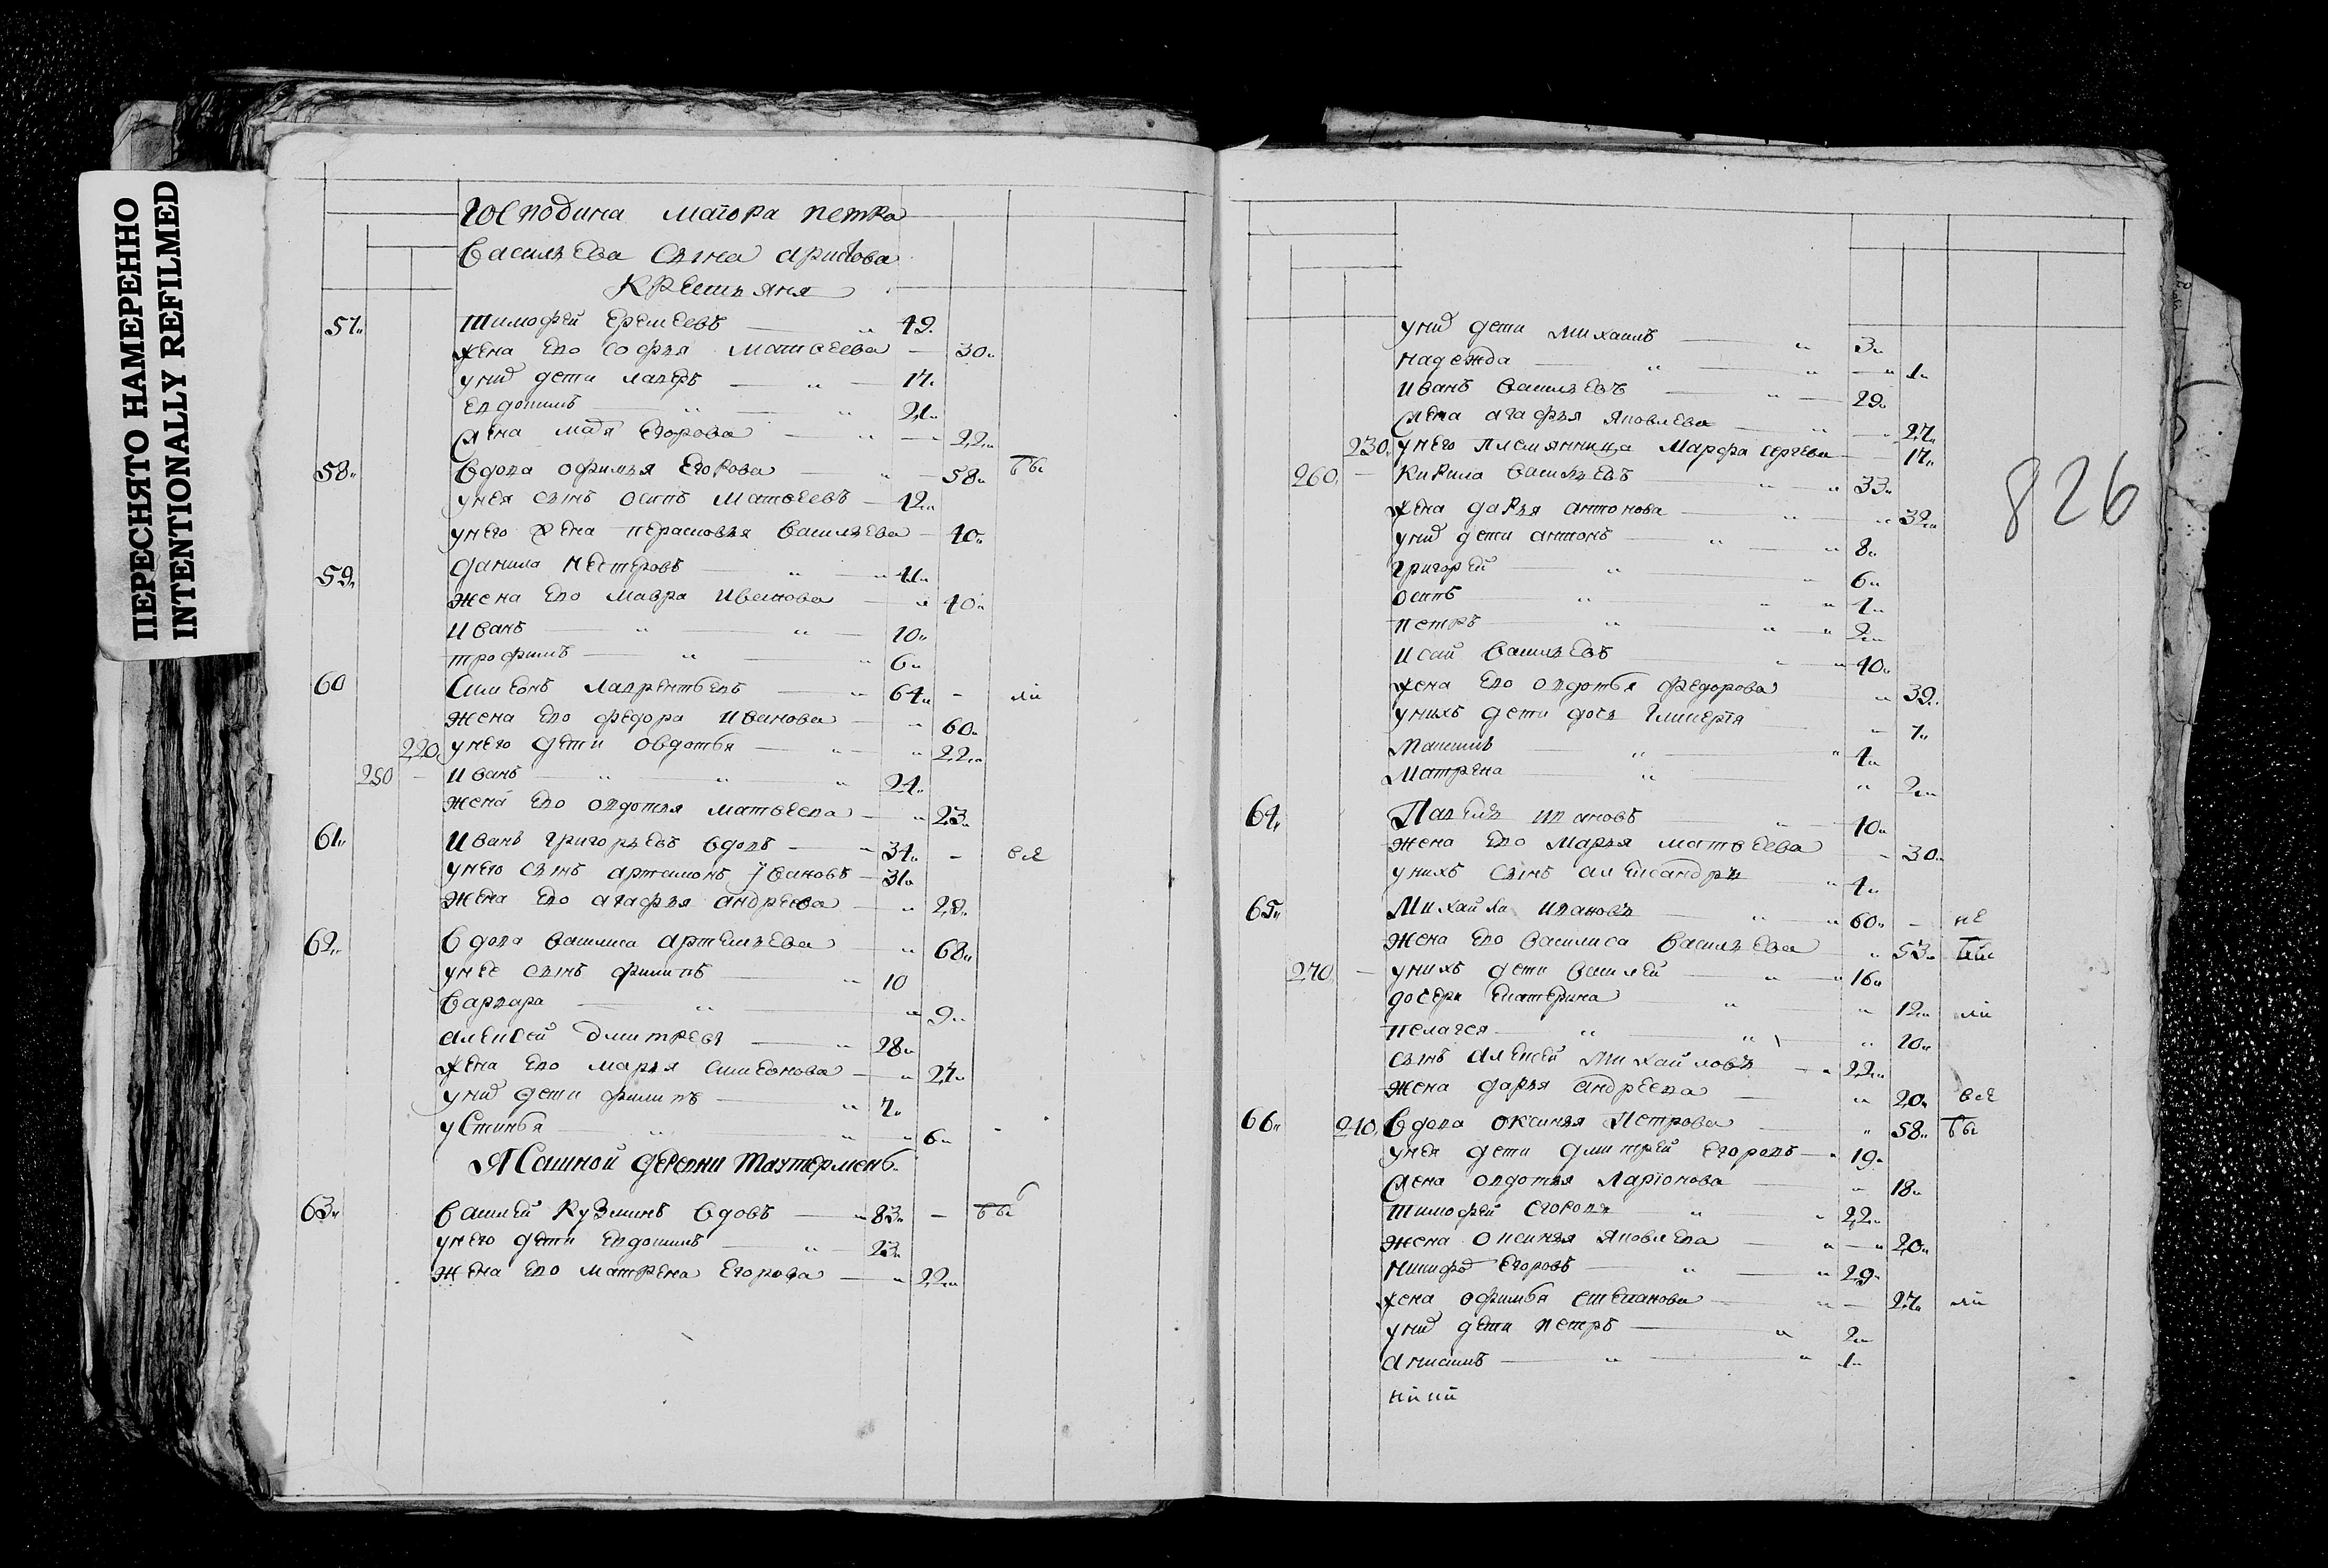 ПЕРЕСНЯТО НАМЕРЕННО
INTENTIONALLY REFILMED
Господина маiора петра
Васильева сына
крестьяня
57 Тимофей Еремеевъ 49
жена ево софья Матвеева 30
уних дети лазерь 17
Евдокимъ 21
жена Егорова 22
58 Вдова офимья Егорова 58
унея сынъ осипъ Матвеевъ 42
унего жена Васильева 40
59 данила Нестеровъ 41
жена ево мавра Иванова 40
Иванъ 10
трофимъ 6
60 Симеонъ лаврентьевъ 64
жена ево федора Иванова 60
220 унего дети овдотья 22
250 Иванъ 24
жена ево овдотья матвеева 23
61 Иванъ григорьевъ вдовъ 34
унего сынъ артамонъ Ивановъ 31
жена ево агафья андреева 28
62 Вдова василиса артемьева 68
унее сынъ филипъ 10
варвара 9
алексей дмитрев 28
жена ево марья симеонова 27
уних дети филипъ 7
устинья 6
деревни
63 василей Кузминъ вдовъ 83
унего дети Евдокимъ 23
жена ево матрена Егорова 22
826
уних дети михаилъ 3
надежда 1
Иванъ васильевъ 29
жена агафья яковлева 27
230 унего племянница Марфа сергеева 17
260 Кирила васильевъ 33
жена дарья антонова 32
уних дети антонъ 8
григорей 6
осипъ
петръ 2
Исай васильевъ 40
жена ево овдотья федорова 39
унихъ дети дочь 7
Матрена 2
64 Павелъ ивановъ 40
жена ево Марья матвеева 30
унихъ сынъ александръ 4
65 Михайла ивановъ 60
жена ево василиса васильева 53
270 унихъ дети василей 16
дочери Екатерина 12
пелагея 10
сынъ алексей михайловъ 22
жена дарья андреева 20
66 240 Вдова оксинья Петрова 58
унея дети дмитрей Егоровъ 19
жена овдотья Ларiонова 18
тимофей Егоровъ 22
жена оксинья яковлева 20
Егоровъ 29
жена офимья степанова 27
уних дети петръ 2
1